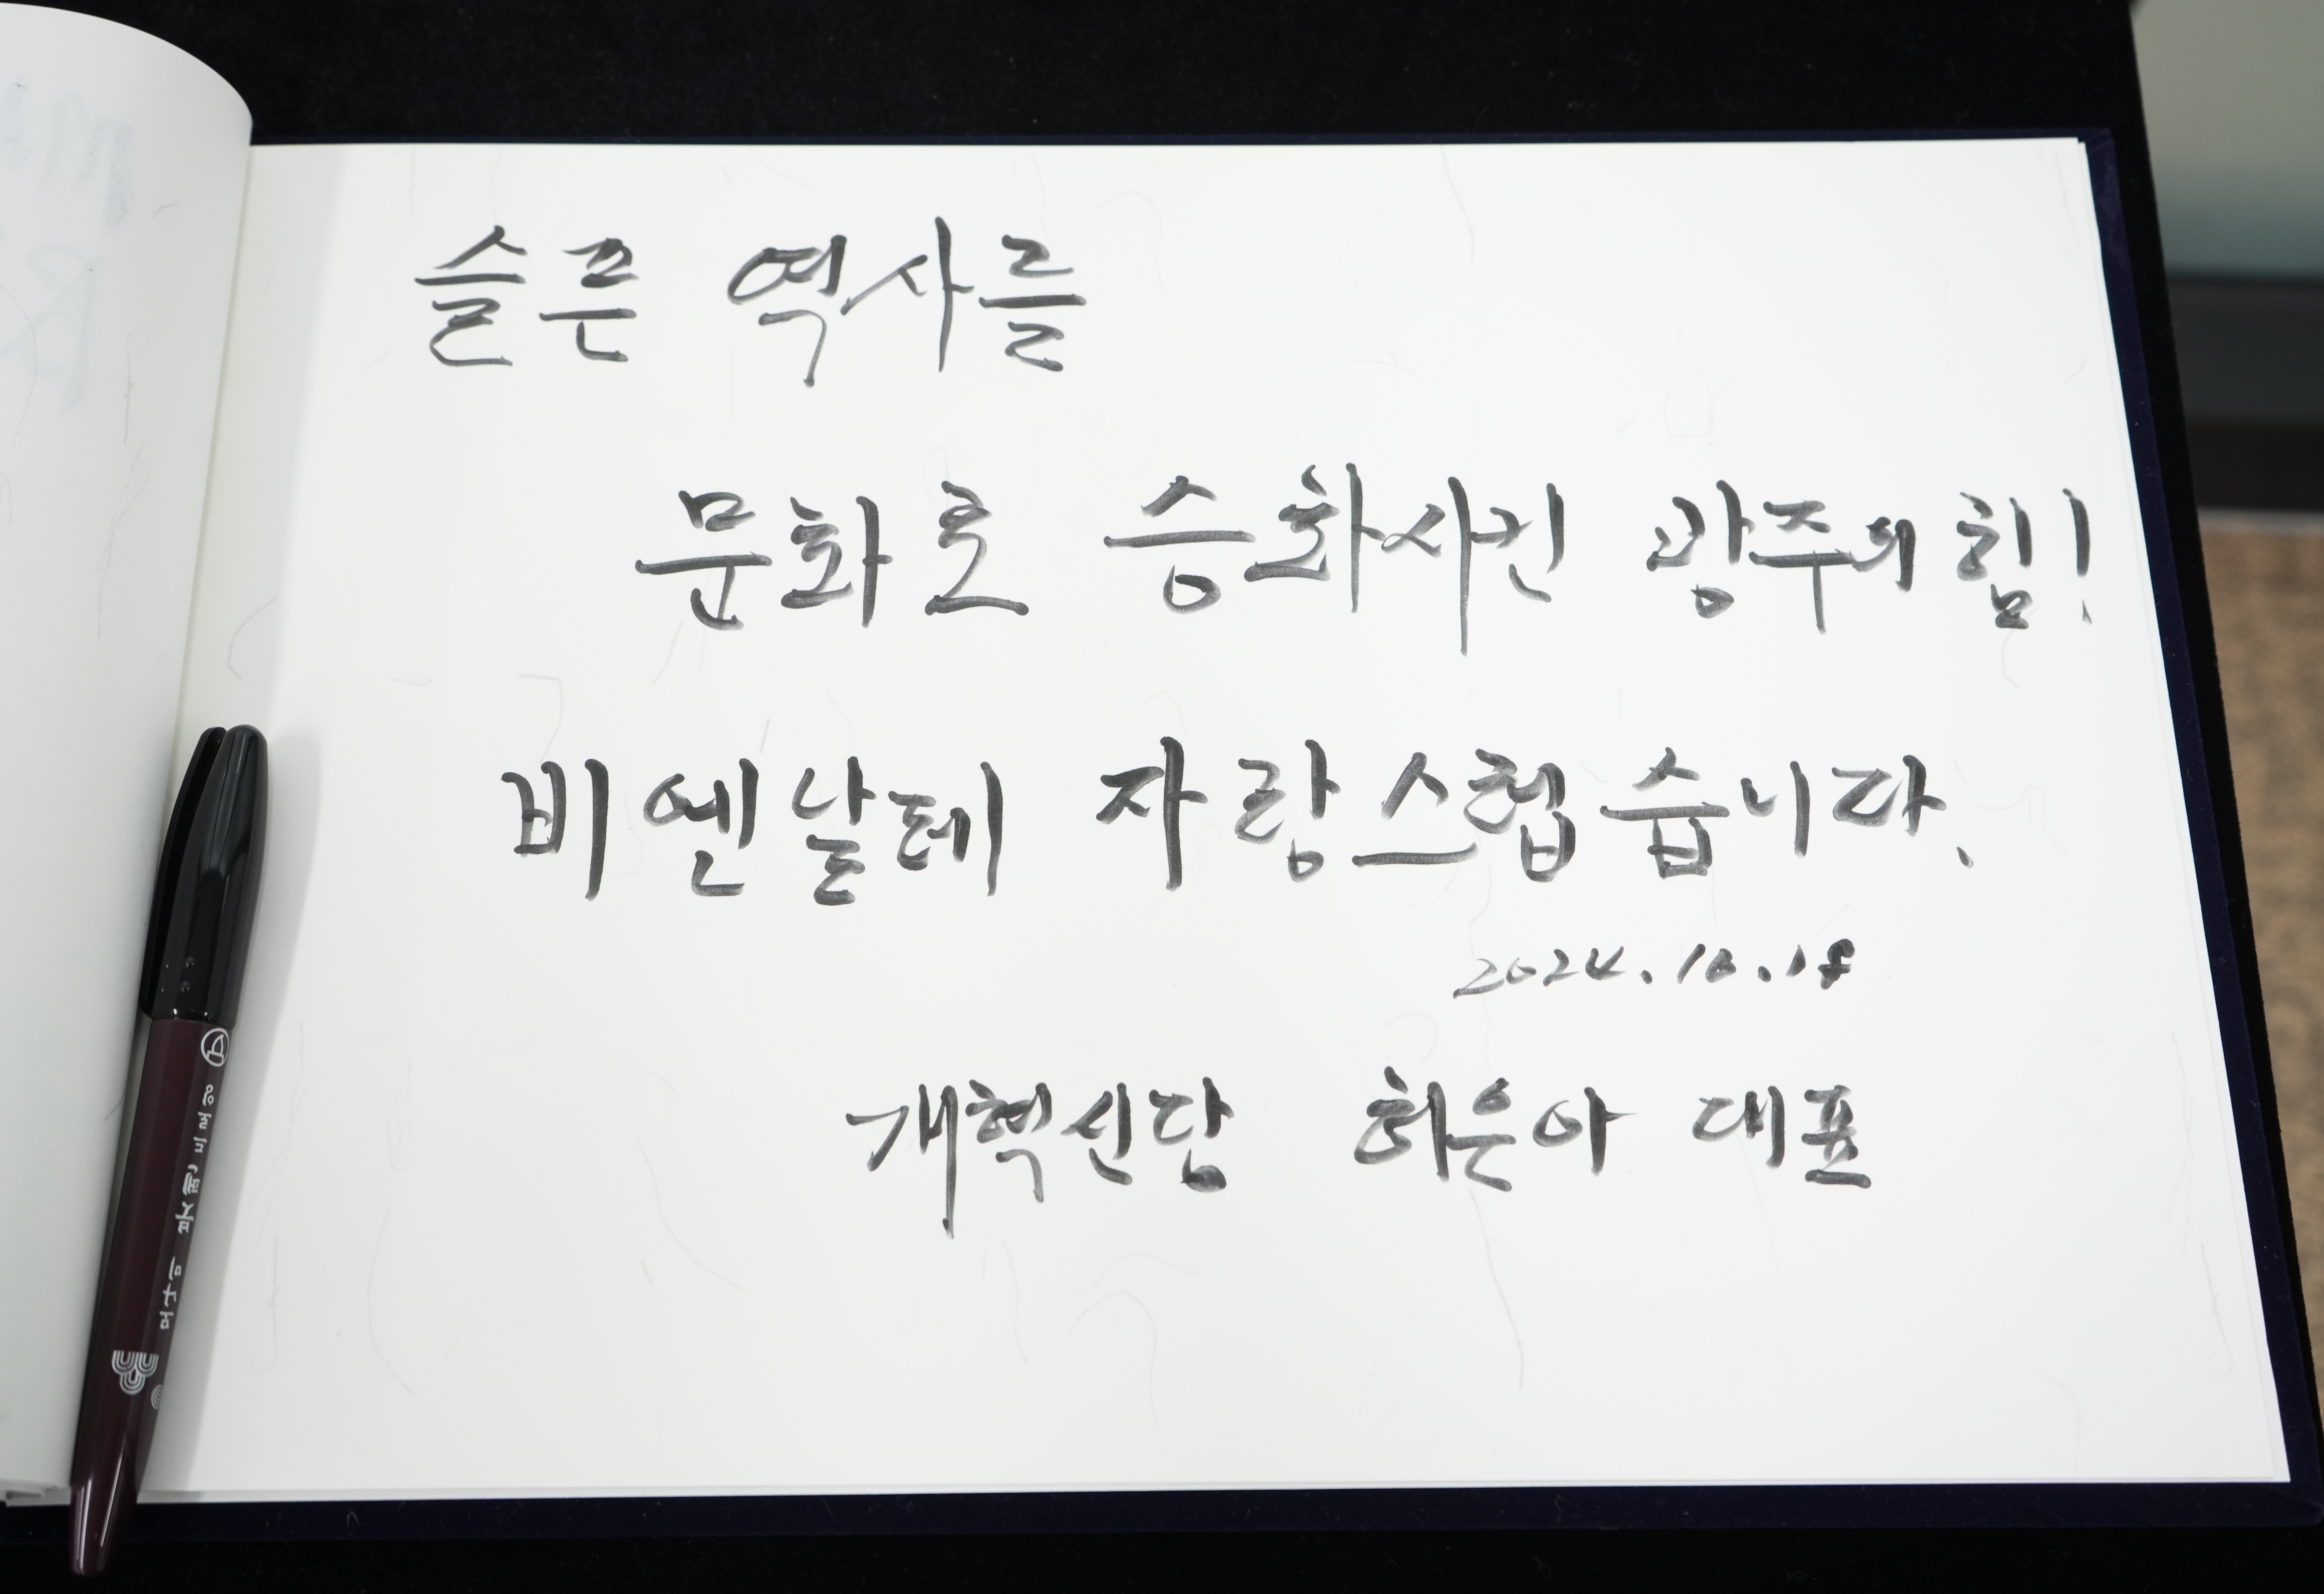 슬픈 역사를
문화로 승화시킨 광주의 힘!
비엔날레 자랑스럽습니다.
2024.10.18
개혁신당 허은아 대표